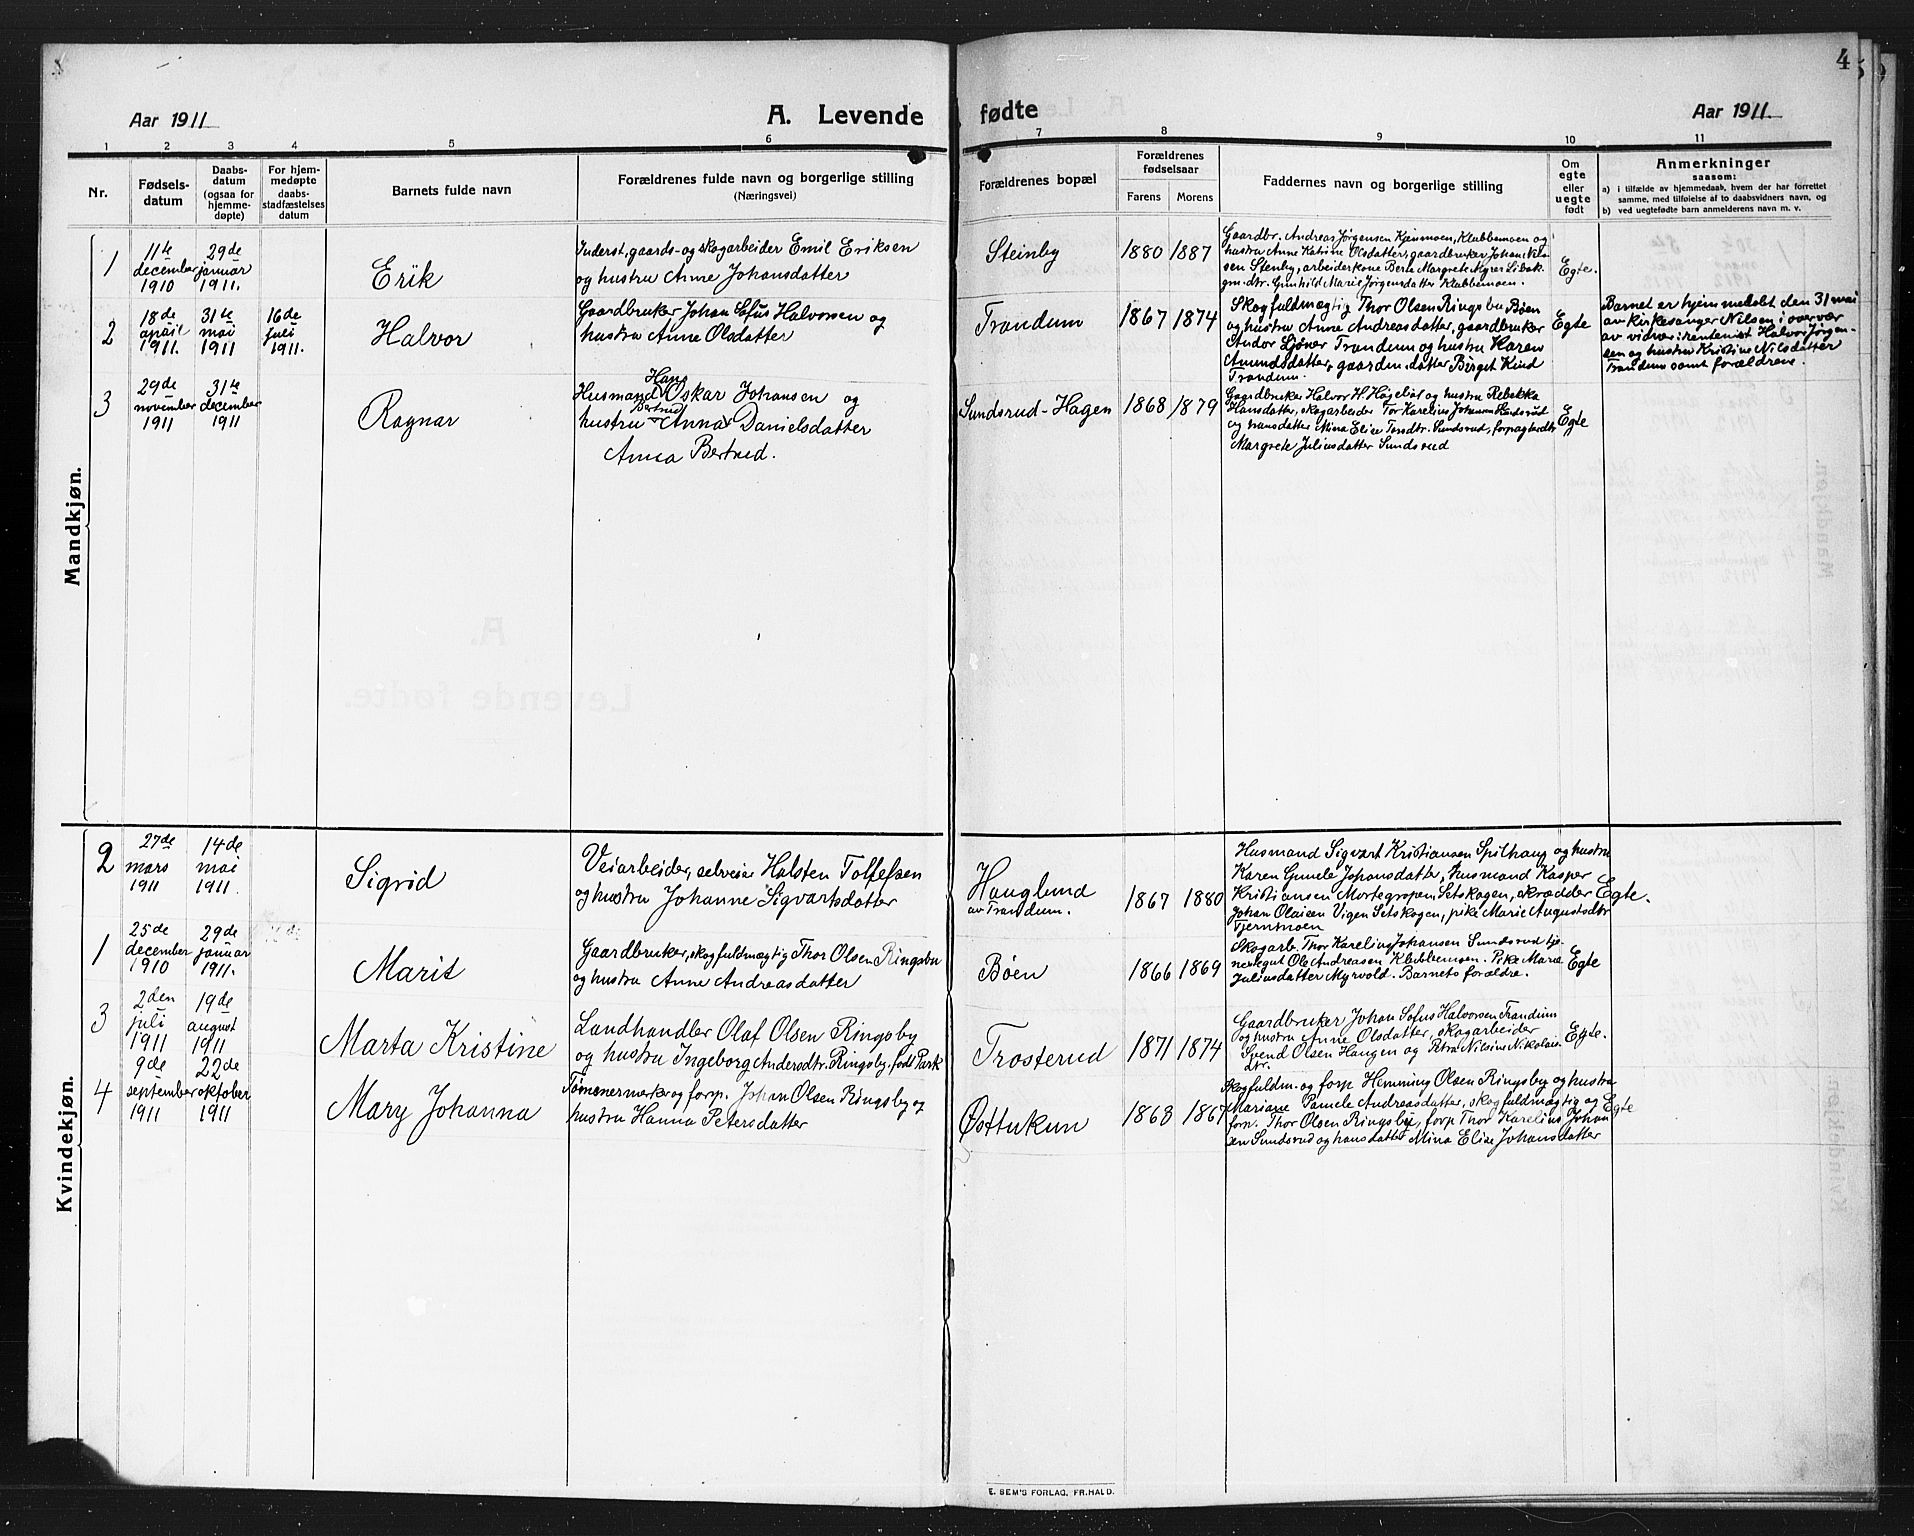 4
Aar 1911
A. Levende
fødte
Aar 1911.
1 2 3 4 5 6 7 8 9 10 11
Nr.
Fødsels-
datum
Daabs-
datum
(ogsaa for
hjemme-
døpte)
For hjem-
medøpte
daabs-
stadfæstelses
datum
Barnets fulde navn
Forældrenes fulde navn og borgerlige stilling
(Næringsvei)
Forældrenes bopæl
Forældrenes
fødselsaar
Farens Morens
Faddernes navn og borgerlige stilling
Om
egte
eller
uegte
født
Anmerkninger
saasom:
a) i tilfælde av hjemmedaab, hvem der har forrettet
samme, med tilføielse af to daabsvidners navn, og
b) ved uegtefødte barn anmelderens navn m. v.
Mandkjøn.
1
11te
december
1910
29de
januar
1911.
Erik
Inderst, gaards- og skogarbeider Emil Eriksen
og hustru Anne Johansdatter
Steinby
1880 1887
Gaardbr. Andreas Jørgensen Kjenmoen, Klubbemoen og
hustru Anne Katrine Olsdatter, gaardbruker Johan Nils-
sen Stenby, arbeiderkone Berte Margrete
dtr. Gunhild Marie Jørgensdatter Klubbemoen.
Egte.
2
18de
april
1911.
31te
mai
1911
16de
juli
1911.
Halvor
Gaardbruker Johan Sofus Halvorsen og
hustru Anne Olsdatter
Trandum
1867 1874
Skogfuldmægtig Thor Olsen Ringsbu Bøen
og hustru Anne Andreasdatter, gaardbruker
Andor Ljøner Trandum og hustru Karen
Amundsdatter, gaardm. datter Birget Kind
Trandum.
Egte
Barnet er hjemmedøbt den 31 mai
av kirkesanger Nilsen i overvær
av vidner: rentenist Halvor Jørgen-
sen og hustru Kristine Nilsdatter
Trandum samt forældrene.
3
29de
november
1911
31te
december
1911
Ragnar
Hans
Husmand Oskar Johansen og
Bertrud
hustru Anna Danielsdatter
Anna Bertrud.
Sundsrud-Hagen
1868 1879
Gaardbruker Halvor H Høgebøl og hustru Rebekka
Hansdatter, skogarbeider Tor Karelius Johansen Sundsrud
og hansdatter Mina Elise Torsdtr. Sundsrud, forpagterdtr
Margrete Juliusdatter Sundsrud
Egte
Kvindekjøn.
2
27de
mars
1911
14de
mai
1911.
Sigrid
Veiarbeider, selveier Halsten Tollefsen
og hustru Johanne Sigvartsdatter
Hauglund
av Trandum.
1867 1880
Husmand Sigvart Kristiansen Spilhaug og hustru
Karen Gunele Johansdatter, husmand Kasper
Kristiansen Mortegropen Setskogen, skrædder
Johan Olaisen Vigen Setskogen, pike Marie Augustsdtr
Tjernmoen
Egte.
1
25de
december
1910
29de
januar
1911.
Marit
Gaardbruker, skogfuldmægtig Thor Olsen Ringsbu
og hustru Anne Andreasdatter
Bøen
1866 1869
Skogarb. Thor Karelius Johansen Sundsrud tje-
nestegut Ole Andreasen Klubbemoen. Pike Marie
Juliusdatter Myrvold. Barnets forældre.
Egte
3
2den
juli
1911
19de
august
1911
Marta Kristine
Landhandler Olaf Olsen Ringsby
og hustru Ingeborg Andersdtr. Ringsby, født Park
Trosterud
1871 1874
Gaardbruker Johan Sofus Halvorsen Trandum
og hustru Anne Olsdatter, skogarbeider
Svend Olsen Haugen og Petra Nilsine Nikolais-
dtr.
Egte.
4
9de
september
1911
22de
oktober
1911
Mary Johanna
Tømmermerker og forp. Johan Olsen Ringsby og
hustru Hanna Petersdatter
Østtukun
1868 1867
Skogfuldm. og forp Hemming Olsen Ringsby og hustru
Mariane Pamele Andreasdatter, skogfuldmægtig og
forp. Thor Olsen Ringsby, forp Thor Karelius Johan
sen Sundsrud og hansdatter Mina Elise Johansdatter
Egte
E. SEM'S FORLAG, FR.HALD.